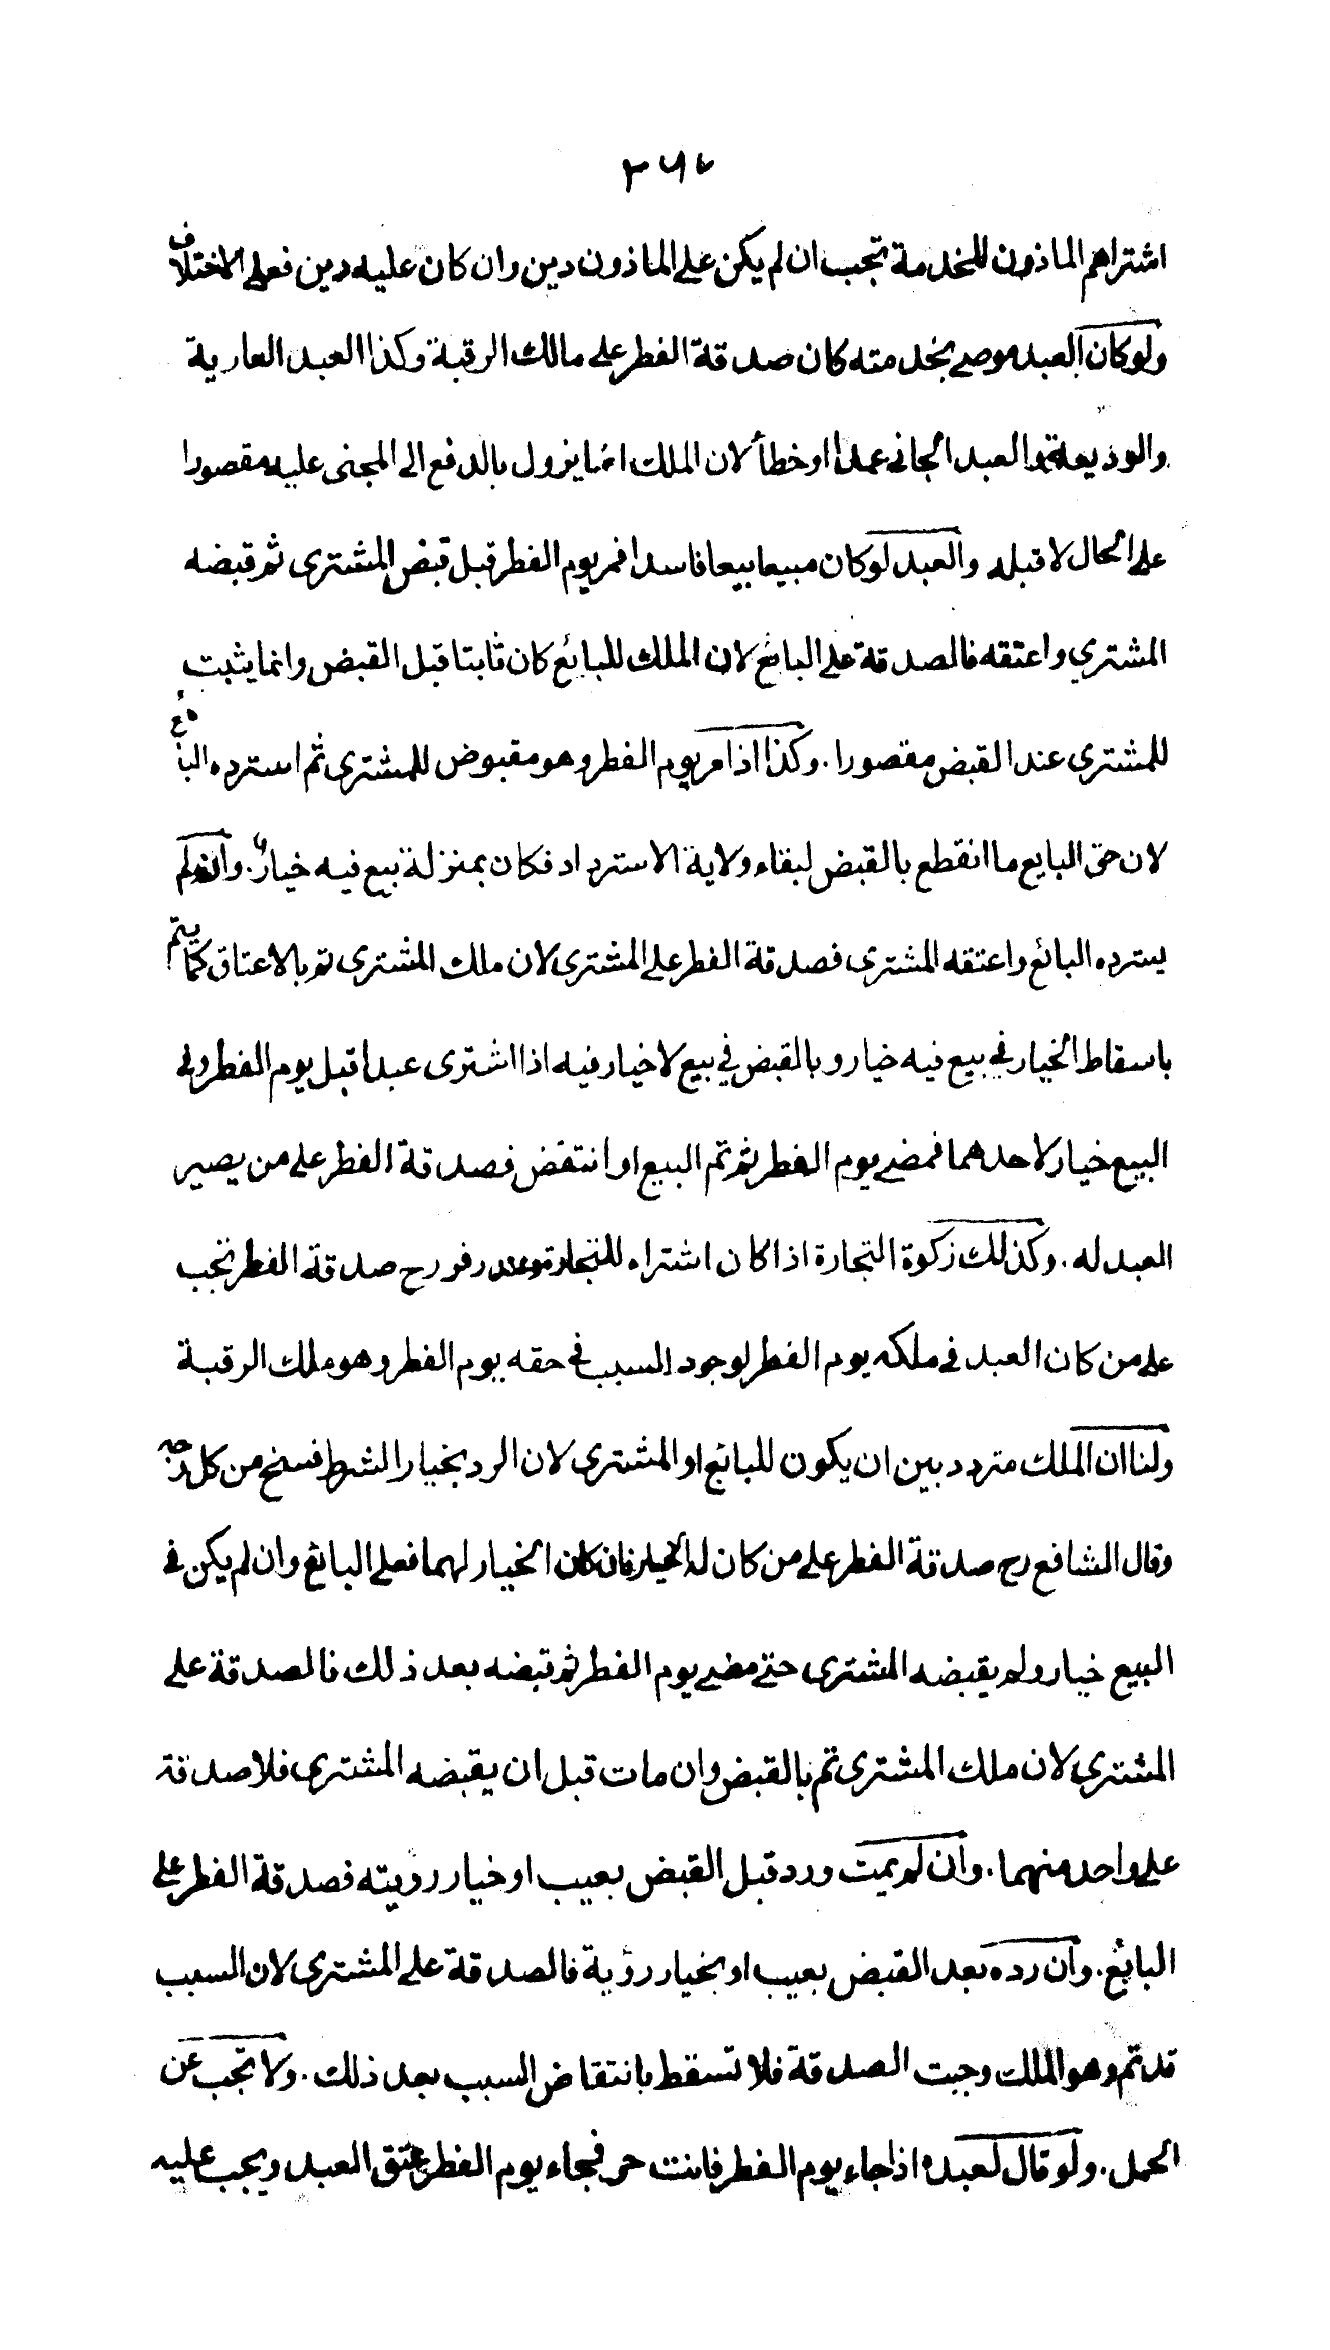 ٢٦٧
اشتراهم الماذون للخدمة تجب ان لم يكن على الماذون دين وان كان عليه دين فعلى الاختلاف
ولو كان العبد موصى بخدمته كان صدقة الفطر على مالك الرقبة وكذا العبد العارية
والوديعة والعبد الجانى عمدا او خطأ لان الملك انما يزول بالدفع الى المجنى عليه مقصورا
على الحال لا قبله والعبد لو كان مبيعا بيعا فاسدا فمر يوم الفطر قبل قبض المشترى ثم قبضه
المشتري واعتقه فالصدقة على البائع لان الملك للبائع كان ثابتا قبل القبض وانما يثبت
للمشترى عند القبض مقصورا . وكذا اذا مر يوم الفطر وهو مقبوض للمشترى ثم استرده البائع
لان حق البايع ما انقطع بالقبض لبقاء ولاية الاسترداد فكان بمنزلة بيع فيه خيار . وان لم
يسترده البائع واعتقه المشترى فصدقة الفطر على المشترى لان ملك المشترى تم بالاعتاق كما يتم
باسقاط الخيار في بيع فيه خيار و بالقبض في بيع لا خيار فيه اذا اشترى عبدا قبل يوم الفطر وفى
البيع خيار لاحدهما فمضى يوم الفطر ثم تم البيع او انتقض فصدقة الفطر على من يصير
العبد له . وكذلك زكوة التجارة اذا كان اشتراه للتجارة وعند زفر رح صدقة الفطر تجب
على من كان العبد فى ملكه يوم الفطر لوجود السبب فى حقه يوم الفطر وهو ملك الرقبة
ولنا ان الملك متردد بين ان يكون للبائع او المشترى لان الرد بخيار الشرط فسخ من كل وجه
وقال الشافعى رح صدقة الفطر على من كان له الخيار فان كان الخيار لهما فعلى البائع وان لم يكن فى
البيع خيار ولم يقبضه المشترى حتى مضى يوم الفطر ثم قبضه بعد ذلك فالصدقة على
المشترى لان ملك المشترى تم بالقبض وان مات قبل ان يقبضه المشترى فلا صدقة
على واحد منهما . وان لم يمت ورد قبل القبض بعيب او خيار رؤيته فصدقة الفطر على
البائع . وان رده بعد القبض بعيب او بخيار رؤية فالصدقة على المشترى لان السبب
قد تم وهو الملك وجبت الصدقة فلا تسقط بانتقاض السبب بعد ذلك . ولا تجب عن
الحمل . ولو قال لعبده اذا جاء يوم الفطر فانت حر فجاء يوم الفطر يعتق العبد ويجب عليه